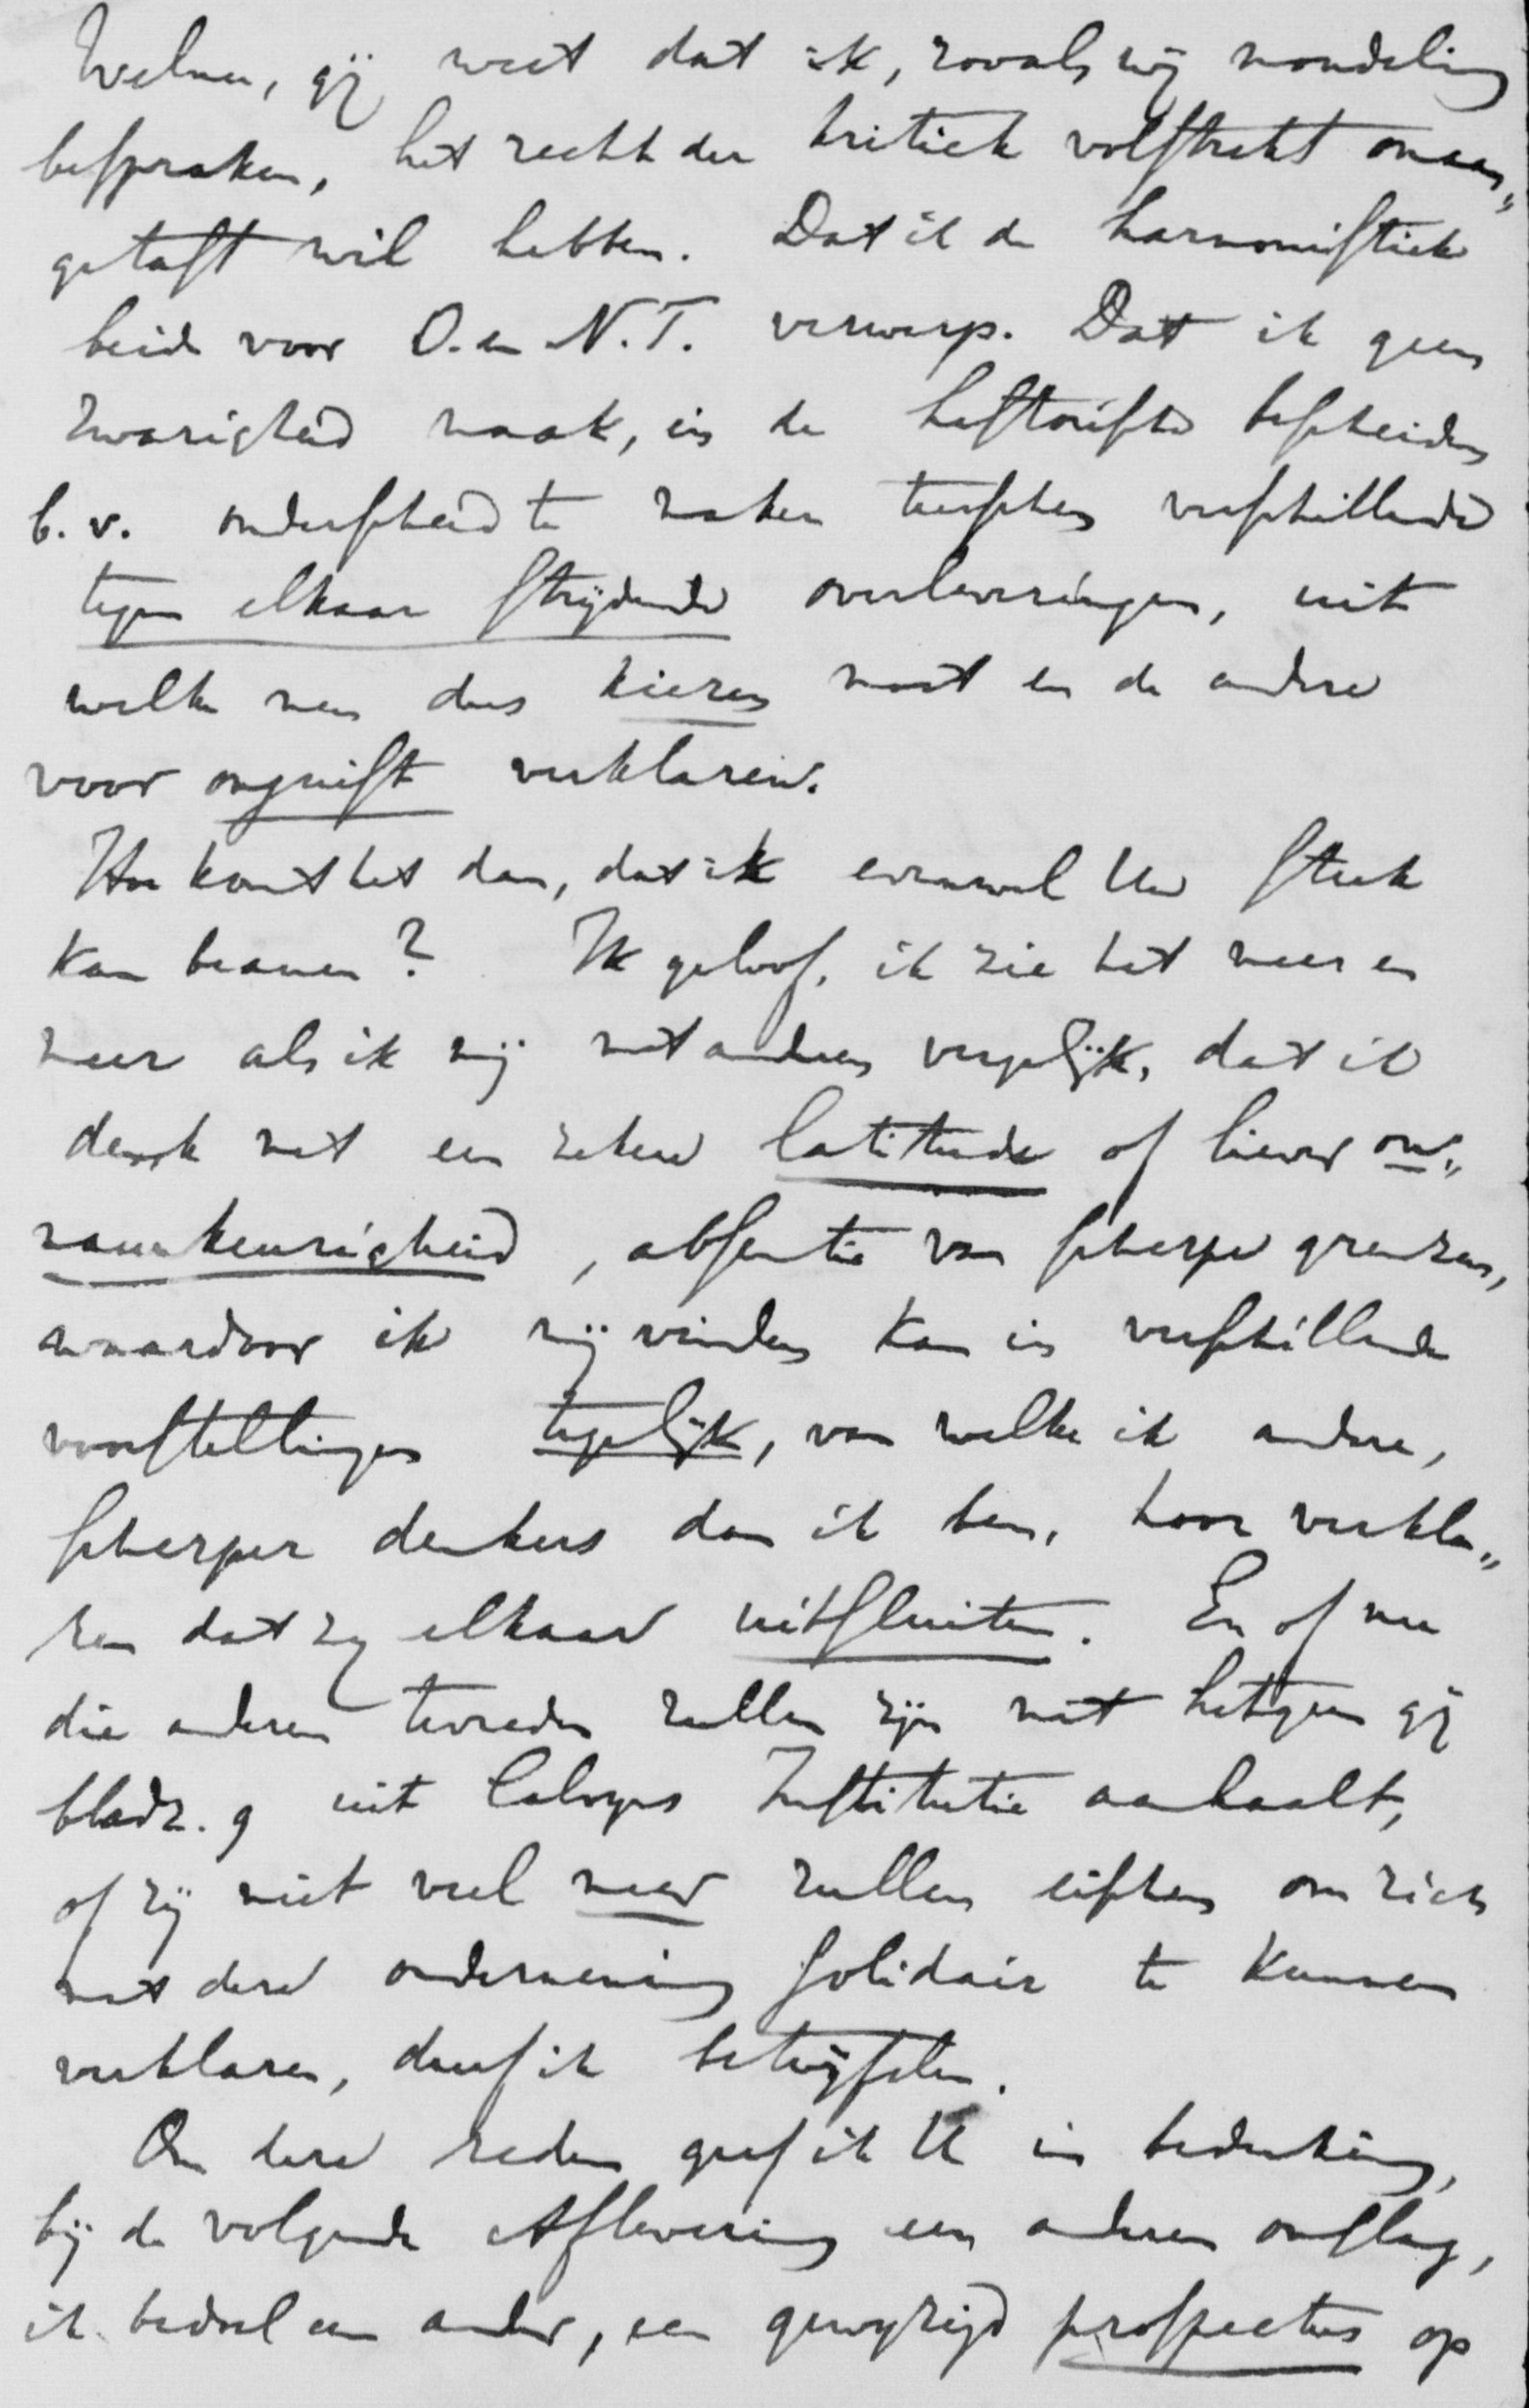 Welnu, gij weet dat ik, zooals wij mondeling
bespraken, het recht der kritiek volstrekt onaan„
getast wil hebben. Dat ik de harmonistiek
beide voor O. en N.T. verwerp. Dat ik geen
zwarigheid maak, in de historische bescheiden
b.v. onderscheid te maken tusschen verschillende
tegen elkaar strijdende overleveringen, uit
welke men dus kiezen moet en de andere
voor onjuist verklaren.
Hoe komt het dan, dat ik evenwel Uw stuk
kan beamen? Ik geloof, ik zie het meer en
meer als ik mij met anderen vergelijk, dat ik
denk met een zekere latitude of liever on„
naauwkeurigheid, absentie van scherpe grenzen,
waardoor ik mij vinden kan in verschillende
voorstellingen tegelijk, van welke ik andere,
scherper denkers dan ik ben, hoor verkla„
ren dat zij elkaar uitsluiten. En of nu
die anderen tevreden zullen zijn met hetgeen gij
bladz. 9 uit Calvijns Institutie aanhaalt,
of zij niet veel meer zullen eischen om zich
met deze onderneming solidair te kunnen
verklaren, durf ik betwijfelen.
Om deze reden geef ik U in bedenking,
bij de volgende Aflevering een anderen omslag,
ik bedoel een ander, een gewijzigd prospectus op